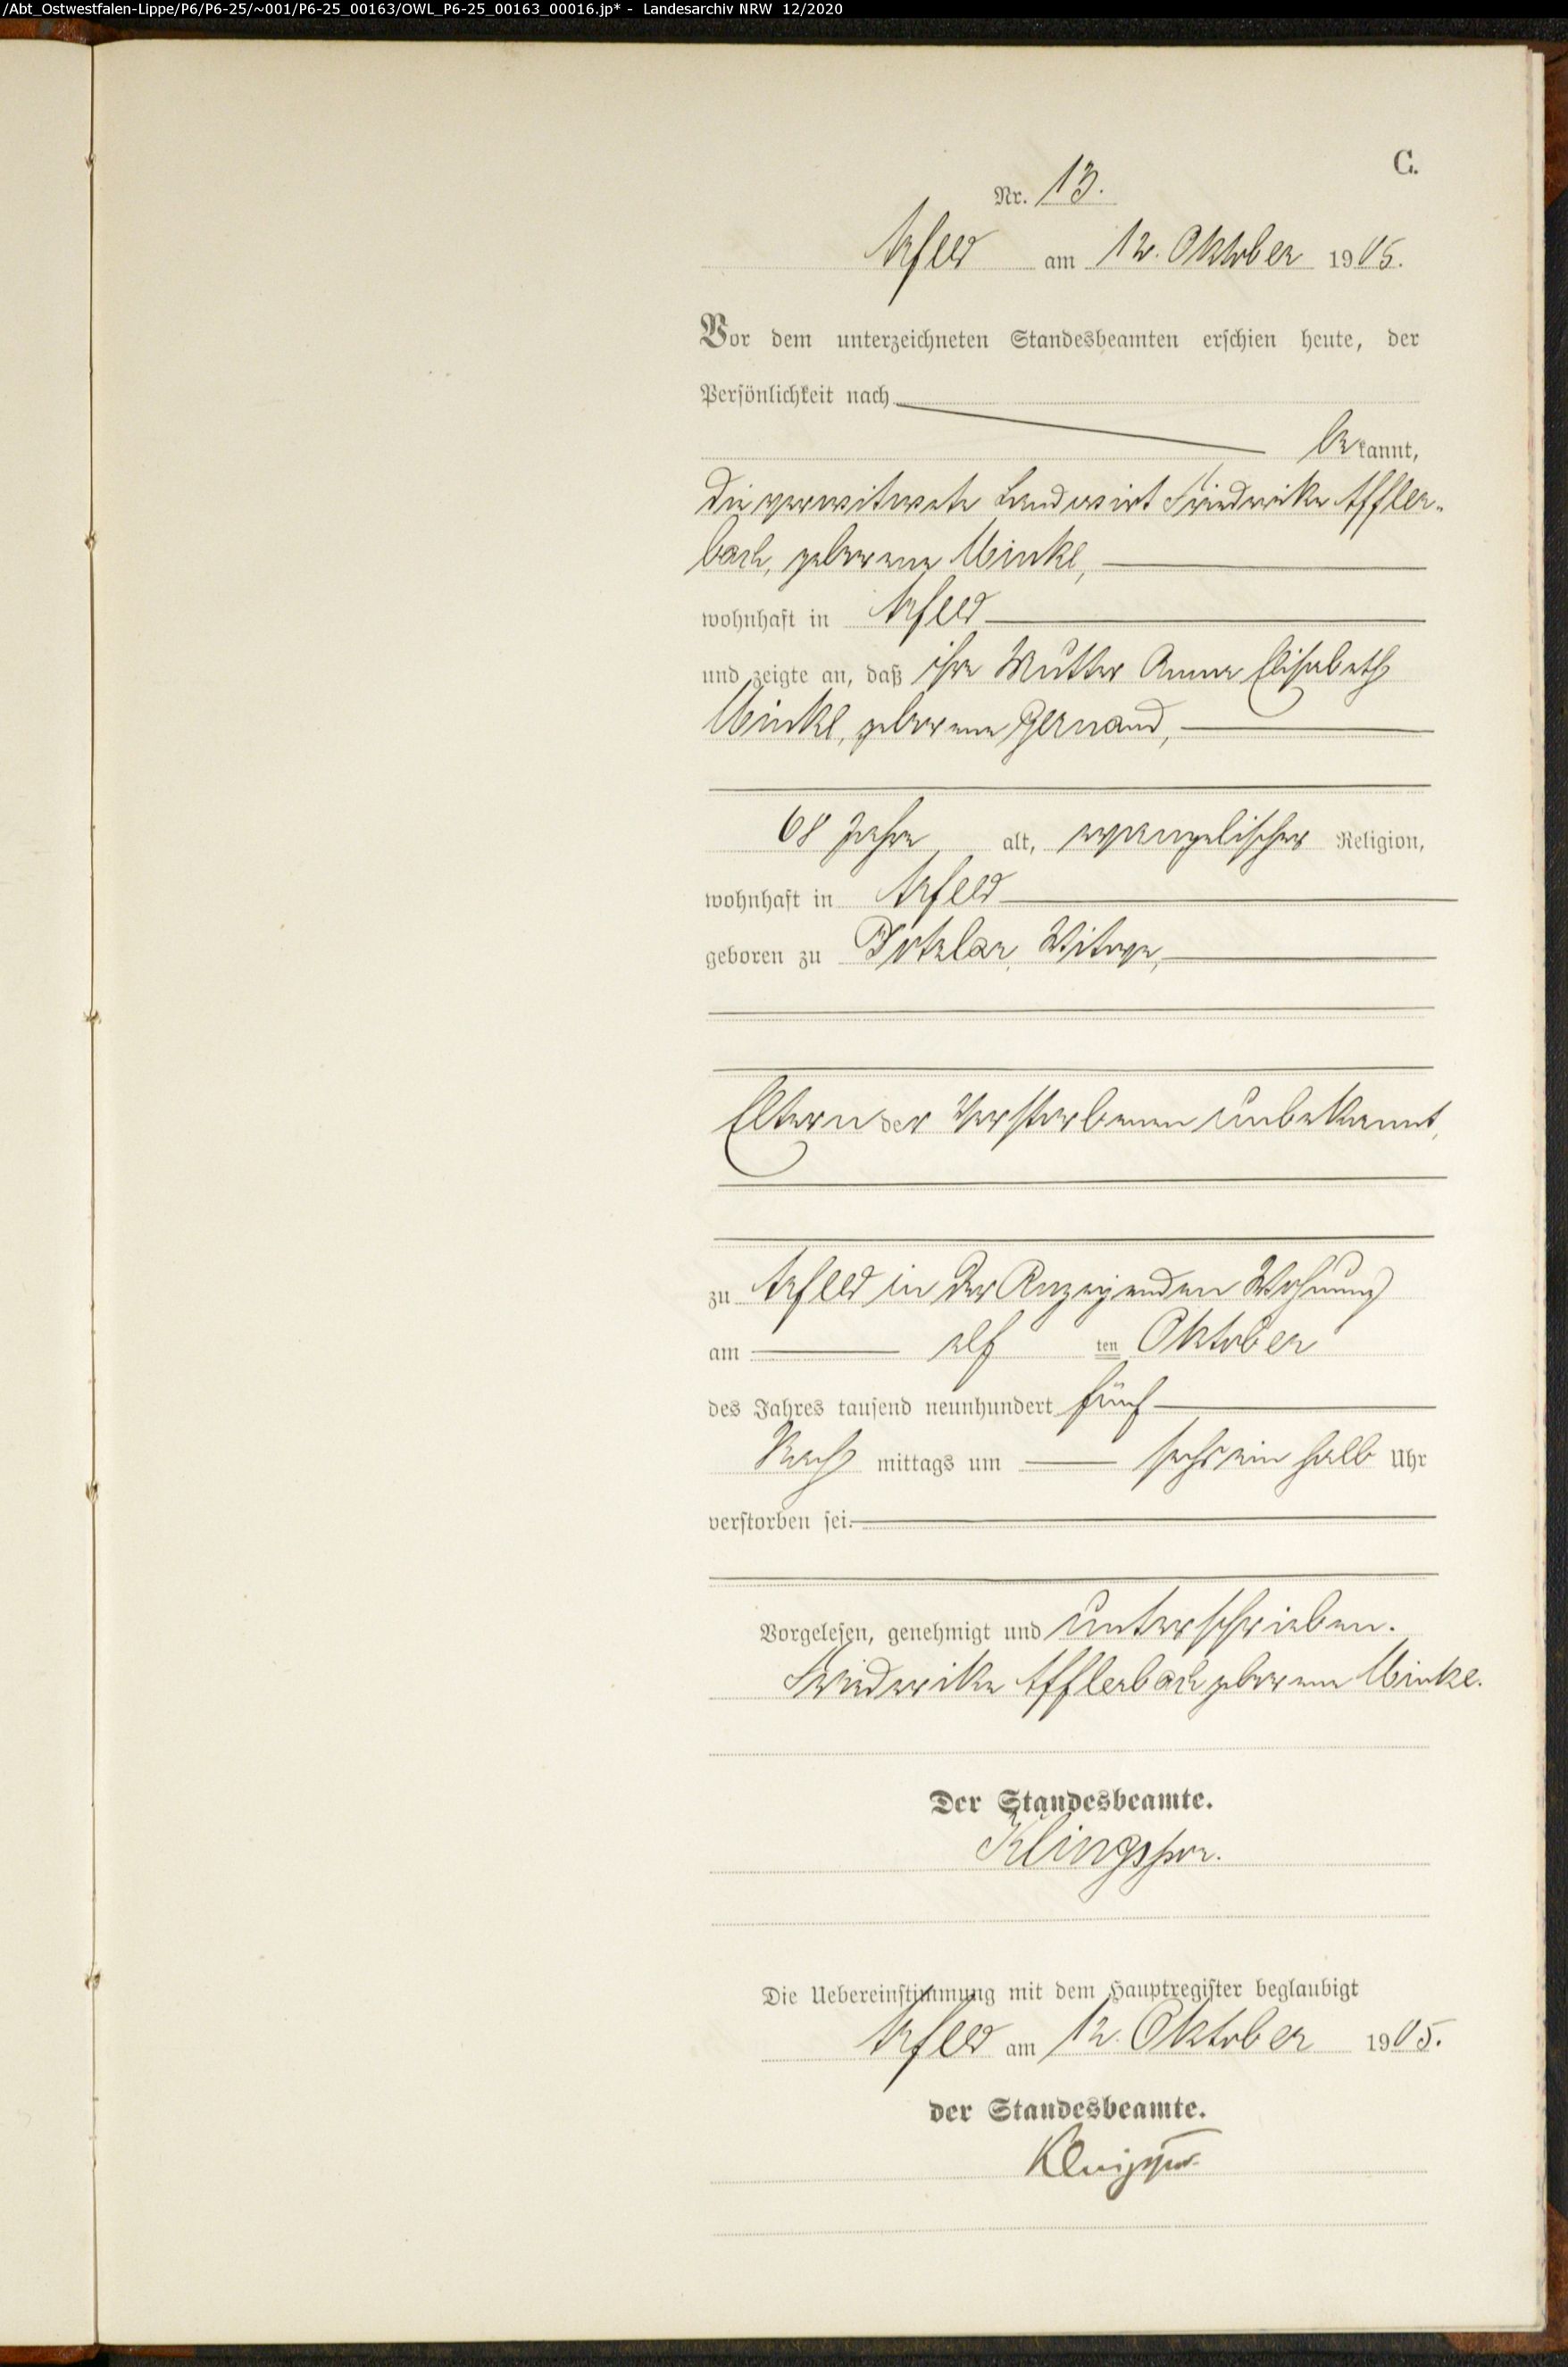 /Abt_Ostwestfalen-Lippe/P6/P6-25/~001/P6-25_00163/OWL_P6-25_00163_00016.jp* - Landesarchiv NRW 12/2020
C.
Nr. 13.
Arfeld am 12. Oktober 1905.
Vor dem unterzeichneten Standesbeamten erschien heute, der
Persönlichkeit nach
bekannt,
die verwitwete Landwirt Friederike Affler-
bach, geborene Minke,
wohnhaft in Arfeld
und zeigte an, daß ihre Mutter Anna Elisabeth
Minke, geborene Gernand,
68 Jahre alt, evangelischer Religion,
wohnhaft in Arfeld
geboren zu Dotzlar, Witwe,
Eltern der Verstorbenen unbekannt,
zu Arfeld in der Anzeigenden Wohnung
am elf ten Oktober
des Jahres tausend neunhundert fünf
Nach mittags um sechs ein halb Uhr
verstorben sei.
Vorgelesen, genehmigt und unterschrieben.
Friederike Afflerbach geborene Minke.
Der Standesbeamte.
Klingspor.
Die Uebereinstimmung mit dem Hauptregister beglaubigt
Arfeld am 12. Oktober 1905.
der Standesbeamte.
Klingspor